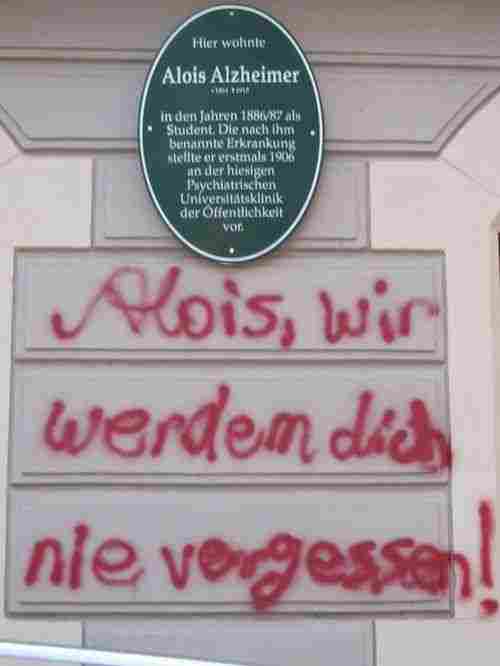 Hier wohnte
Alois Alzheimer
in den Jahren 1886/87 als
Student. Die nach ihm
benannte Erkrankung
stellte er erstmals 1906
an der hiesigen
Psychiatrischen
Universitätsklinik
der Öffentlichkeit
vor.
Alois, wir
werdem dich
nie vergessen!